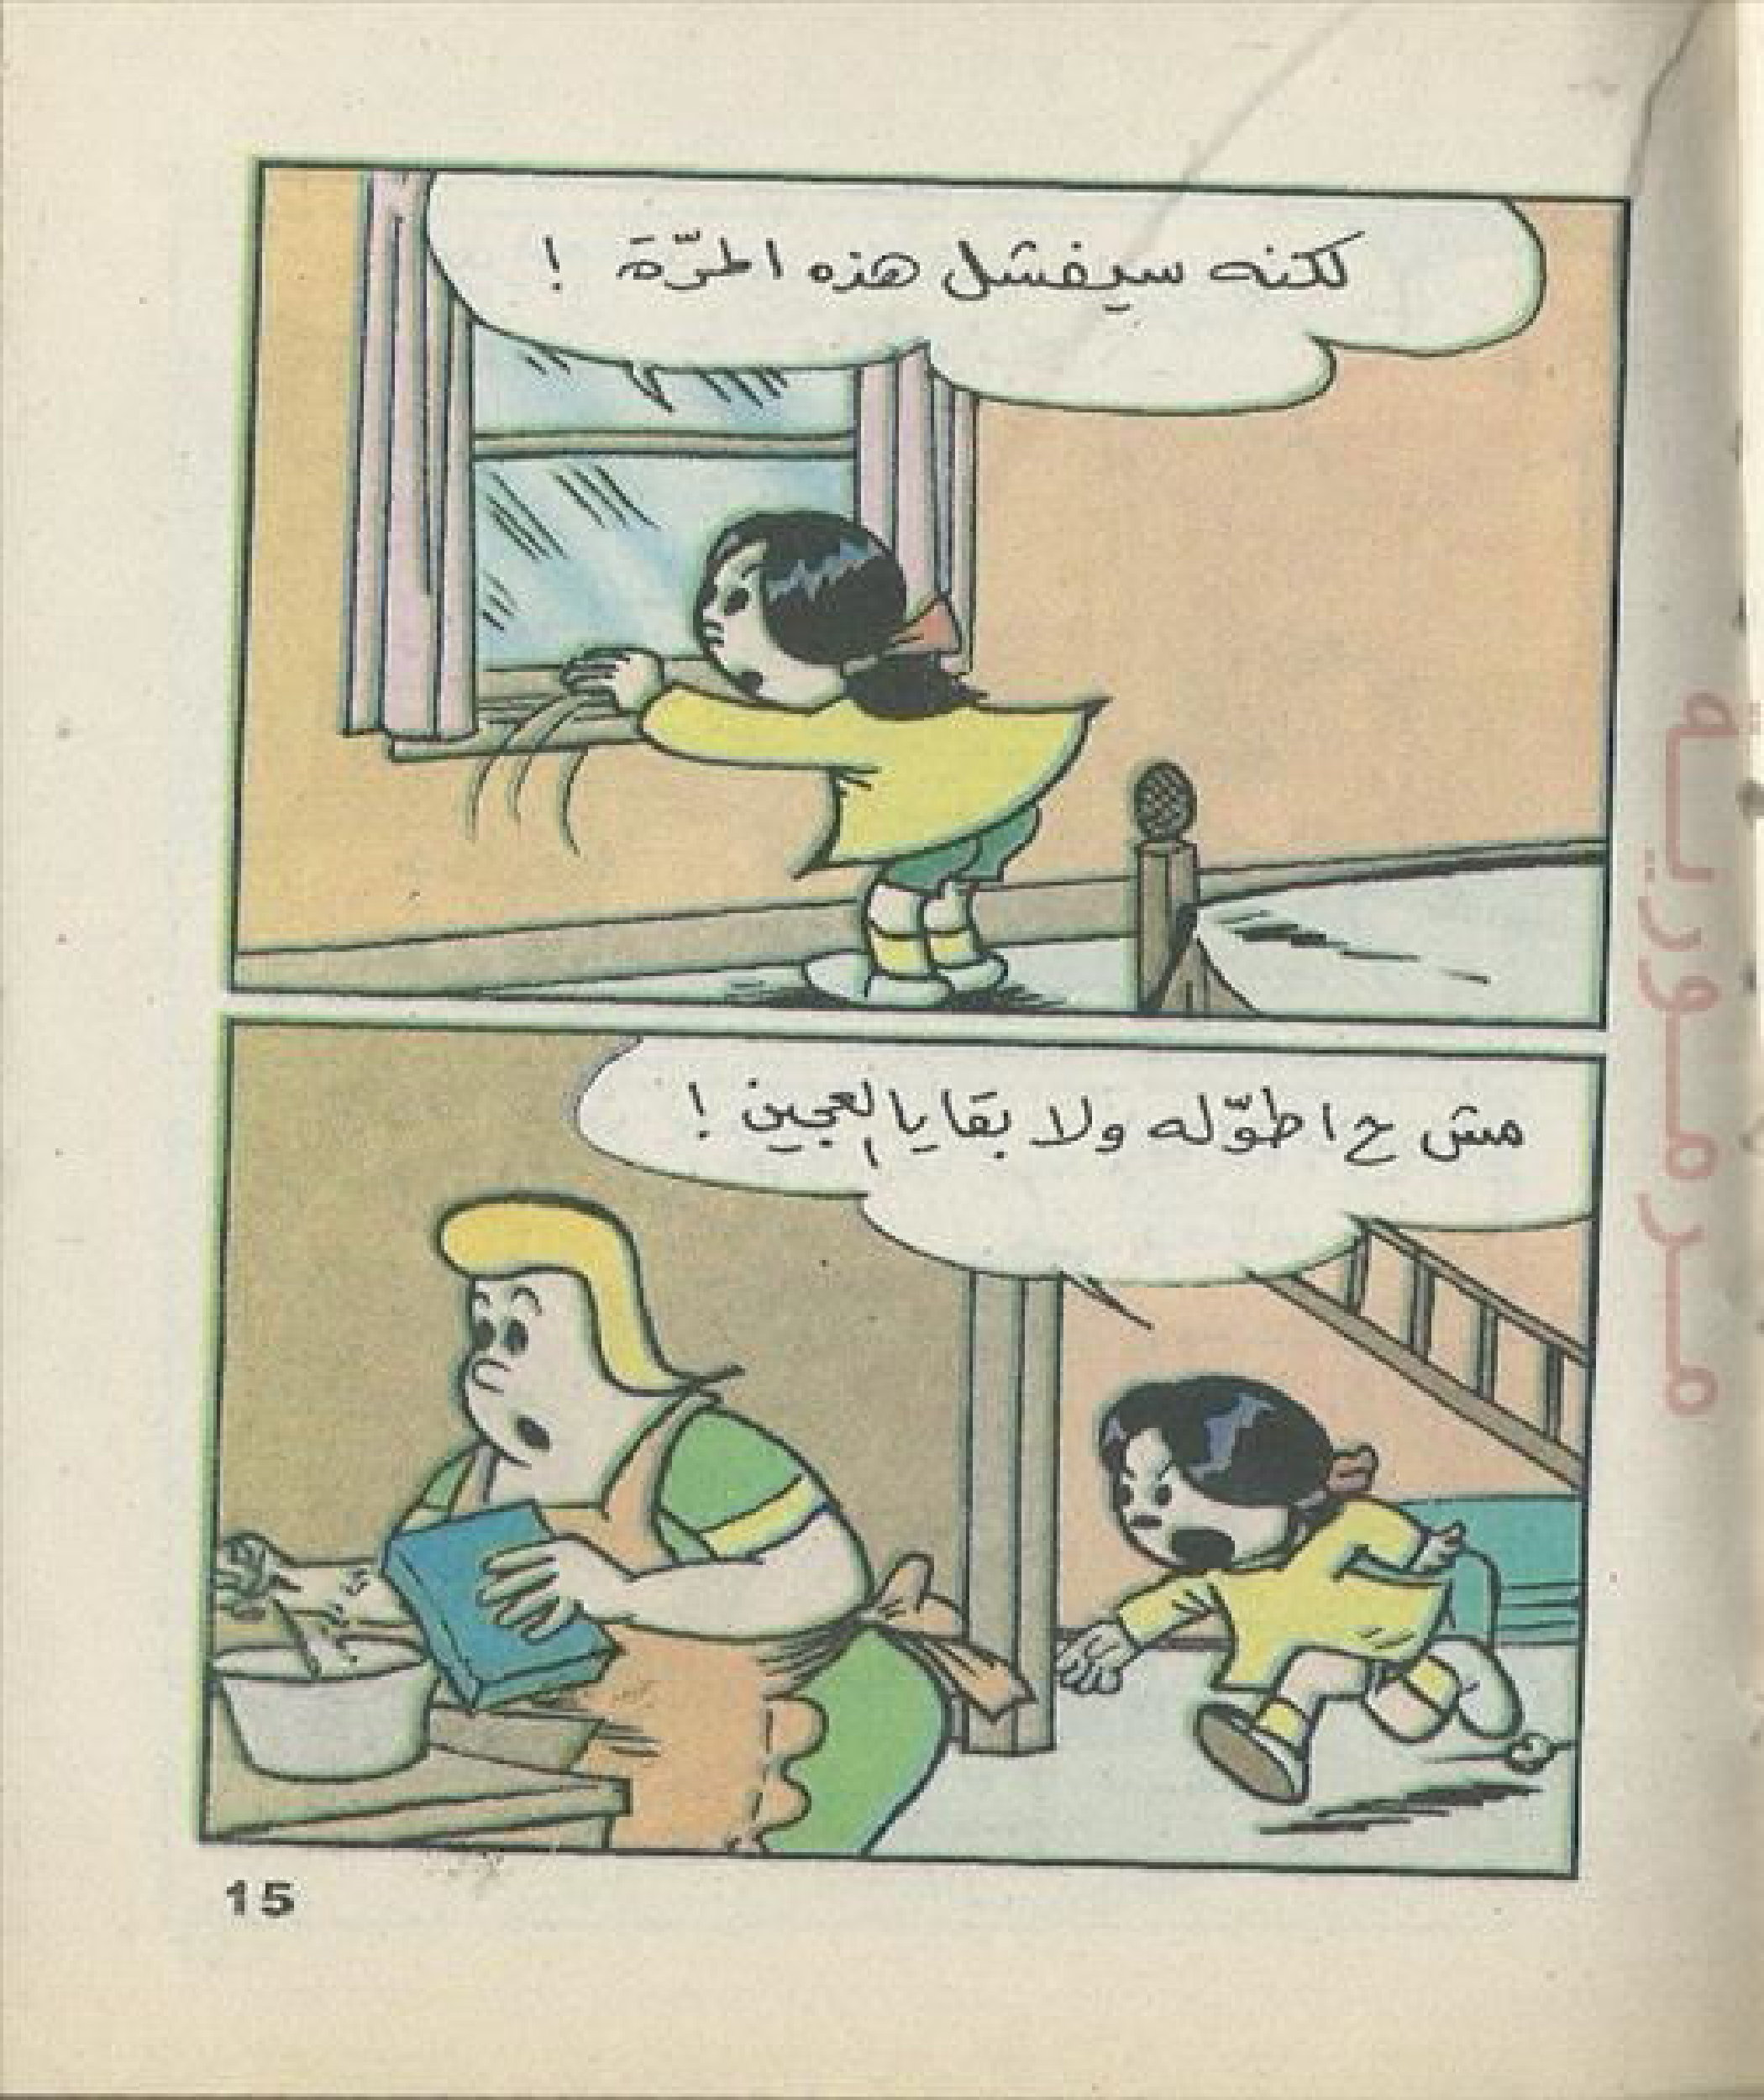 لكنه سيفشل هذه المرّة !
مش ح اطوّله ولا بقايا العجين !
15
مرموريه